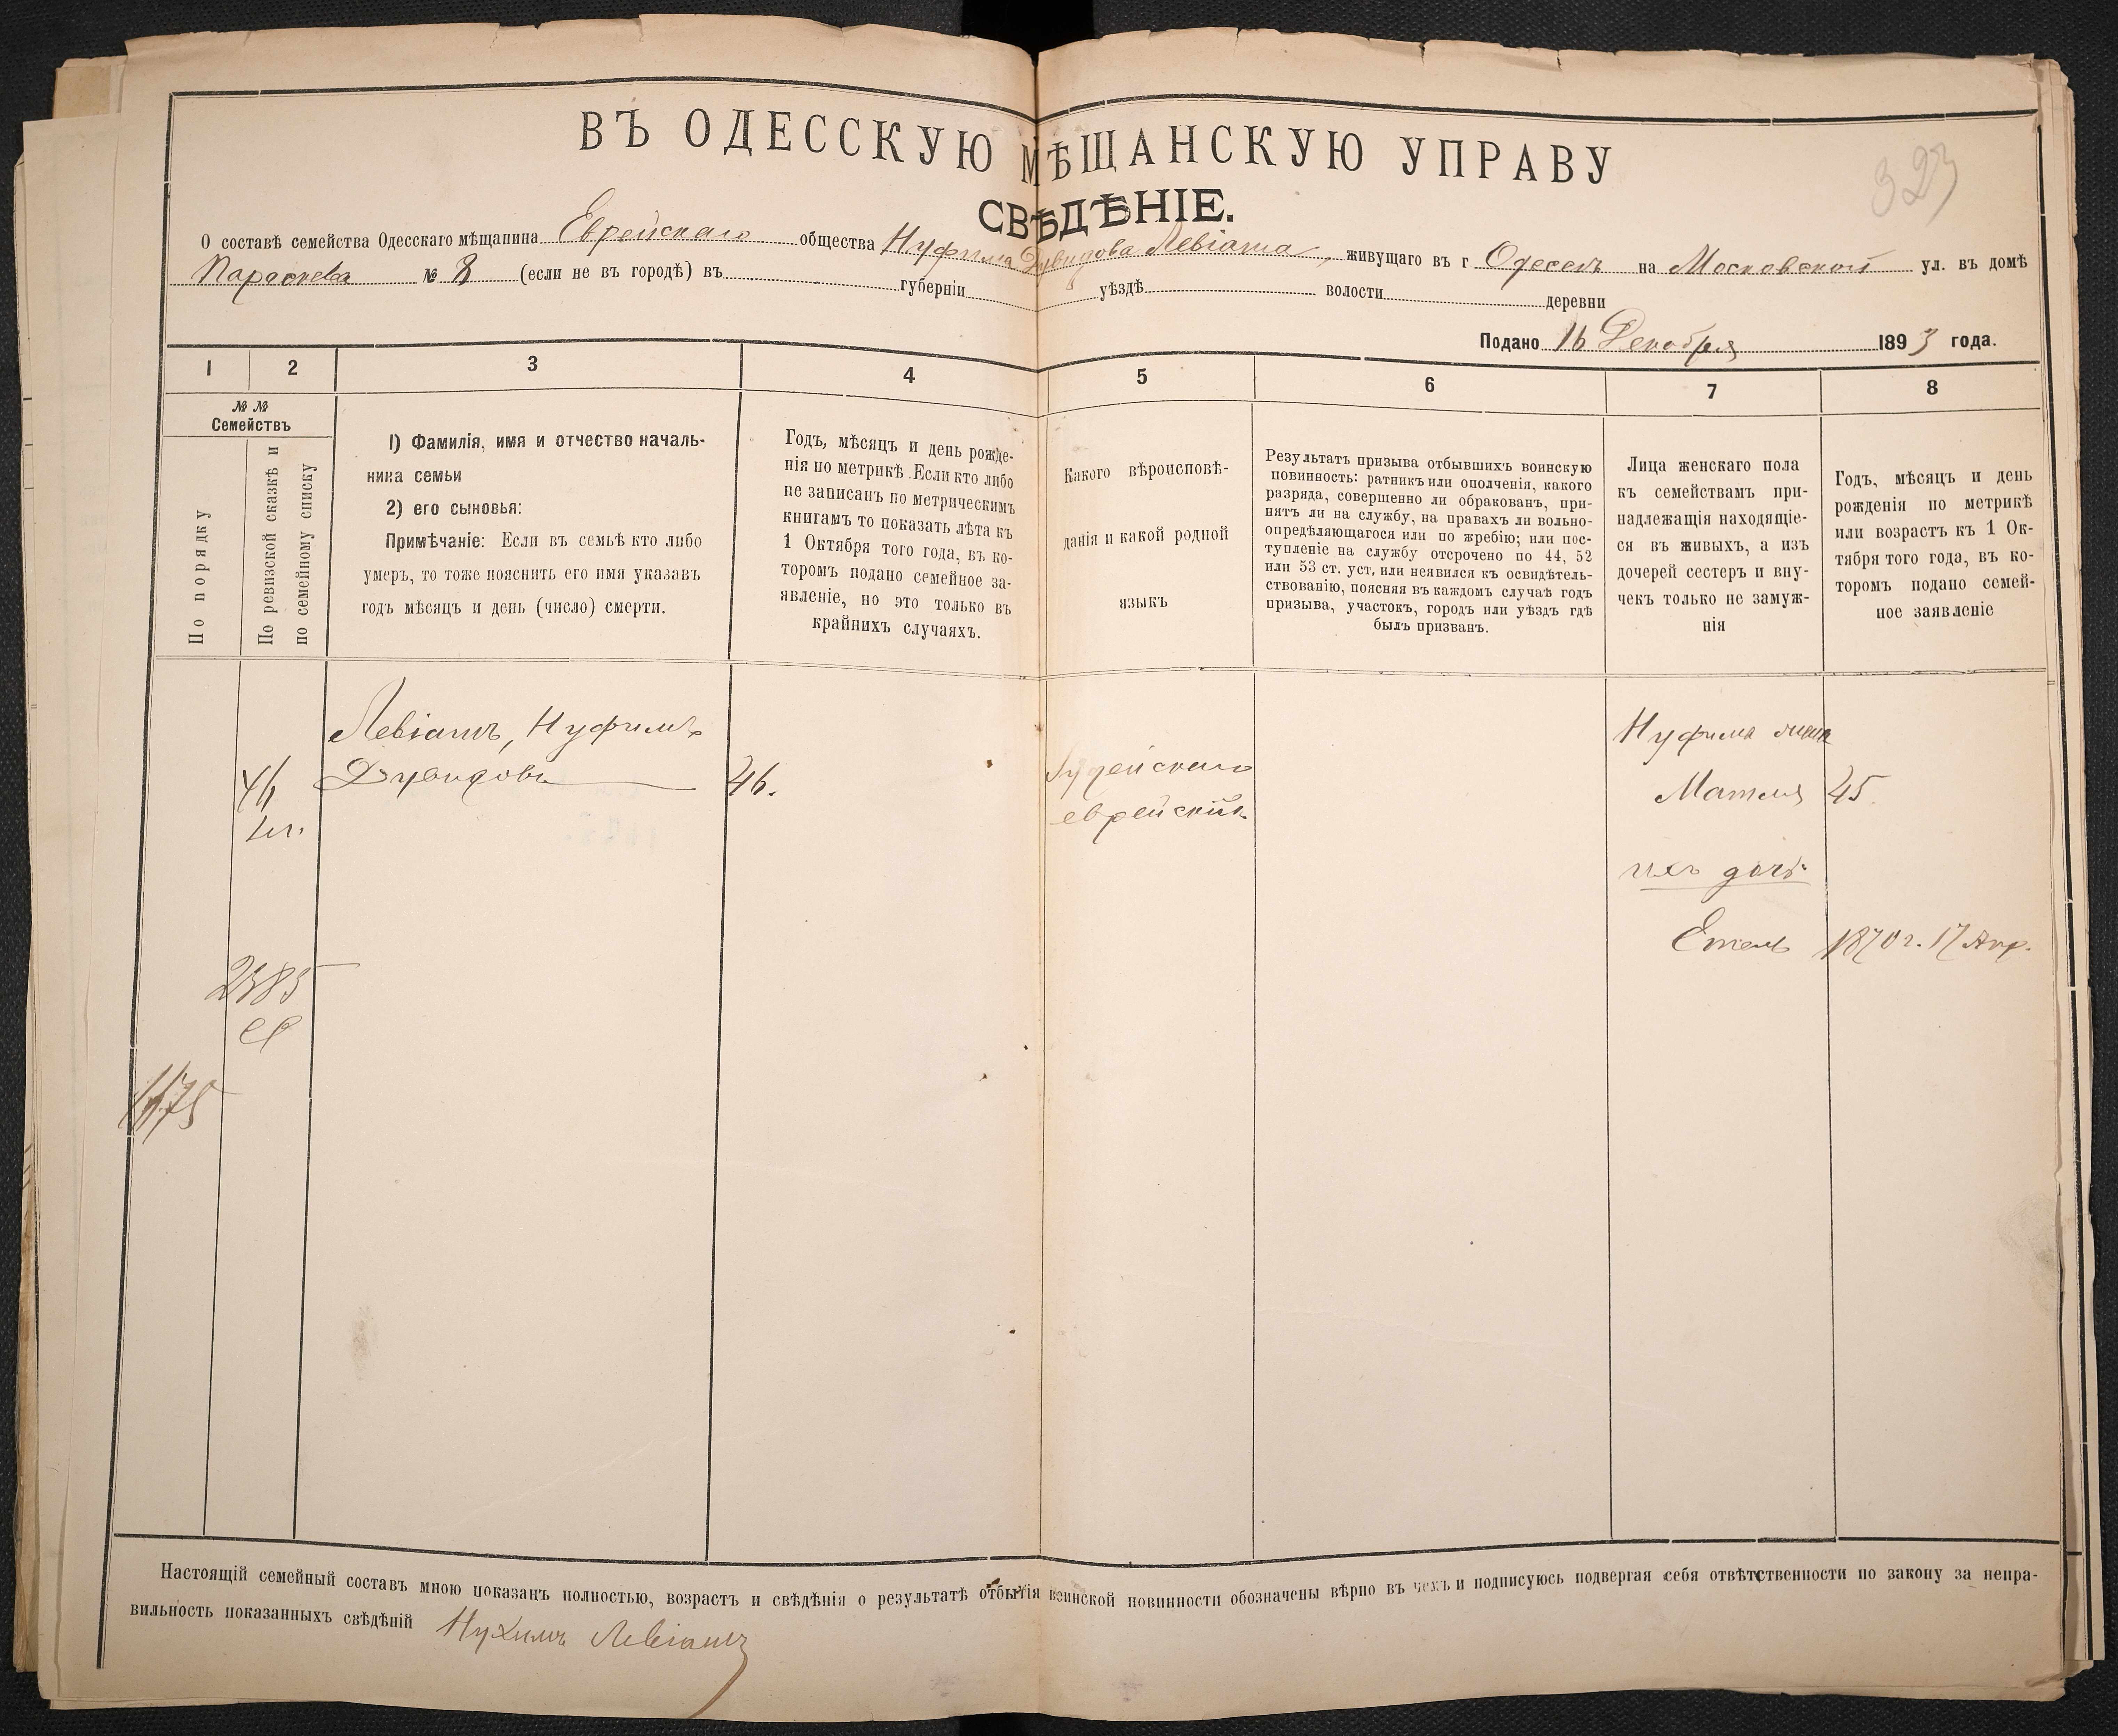 323
ВЪ ОДЕССКУЮ МѢЩАНСКУЮ УПРАВУ
СВѢДѢНІЕ.
О составѣ семейства Одесскаго мѣщанина Еврейскаго общества Нуфима Дувидова Левіата, живущаго въ г Одессѣ на Московской ул. въ домѣ
Параскева № 8 (если не въ городѣ) въ губерніи уѣздѣ волости деревни
Подано 16 Декабря 1893 года.
1 2 3 4 5 6 7 8
№ № Семействъ
По порядку
По ревизской сказкѣ и
по семейному списку
1) Фамилія, имя и отчество началь-
ника семьи
2) его сыновья:
Примѣчаніе: Если въ семьѣ кто либо
умеръ, то тоже пояснить его имя указавъ
годъ мѣсяцъ и день (число) смерти.
Годъ, мѣсяцъ и день рожде-
нія по метрикѣ. Если кто либо
не записанъ по метрическимъ
книгамъ то показать лѣта къ
1 Октября того года, въ ко-
торомъ подано семейное за-
явленіе, но это только въ
крайнихъ случаяхъ.
Какого вѣроисповѣ-
данія и какой родной
языкъ
Результатъ призыва отбывшихъ воинскую
повинность: ратникъ или ополченія, какого
разряда, совершенно ли обракованъ, при-
нятъ ли на службу, на правахъ ли вольно-
опредѣляющагося или по жребію; или пос-
тупленіе на службу отсрочено по 44, 52
или 53 ст. уст, или неявился къ освидѣтель-
ствованію, поясняя въ каждомъ случаѣ годъ
призыва, участокъ, городъ или уѣздъ гдѣ
былъ призванъ.
Лица женскаго пола
къ семействамъ при-
надлежащія находящіе-
ся въ живыхъ, а изъ
дочерей сестеръ и вну-
чекъ только не замуж-
нія
Годъ, мѣсяцъ и день
рожденія по метрикѣ
или возрастъ къ 1 Ок-
тября того года, въ ко-
торомъ подано семей-
ное заявленіе
Левіатъ, Нуфимъ
Дувидовъ
46.
Іудейскаго
еврейскій
Нуфима жена
Матля 45.
ихъ дочь
Етель 1870 г. 17 Апр.
2385
1175
Настоящій семейный составъ мною показанъ полностью, возрастъ и свѣдѣнія о результатѣ отбытія воинской повинности обозначены вѣрно въ чемъ и подписуюсь подвергая себя отвѣтственности по закону за непра-
вильность показанныхъ свѣдѣній Нухимъ Левіатъ